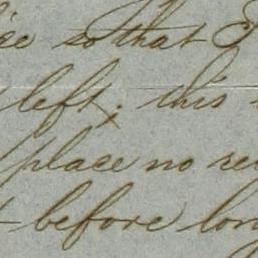 so that
left; this
place no
before